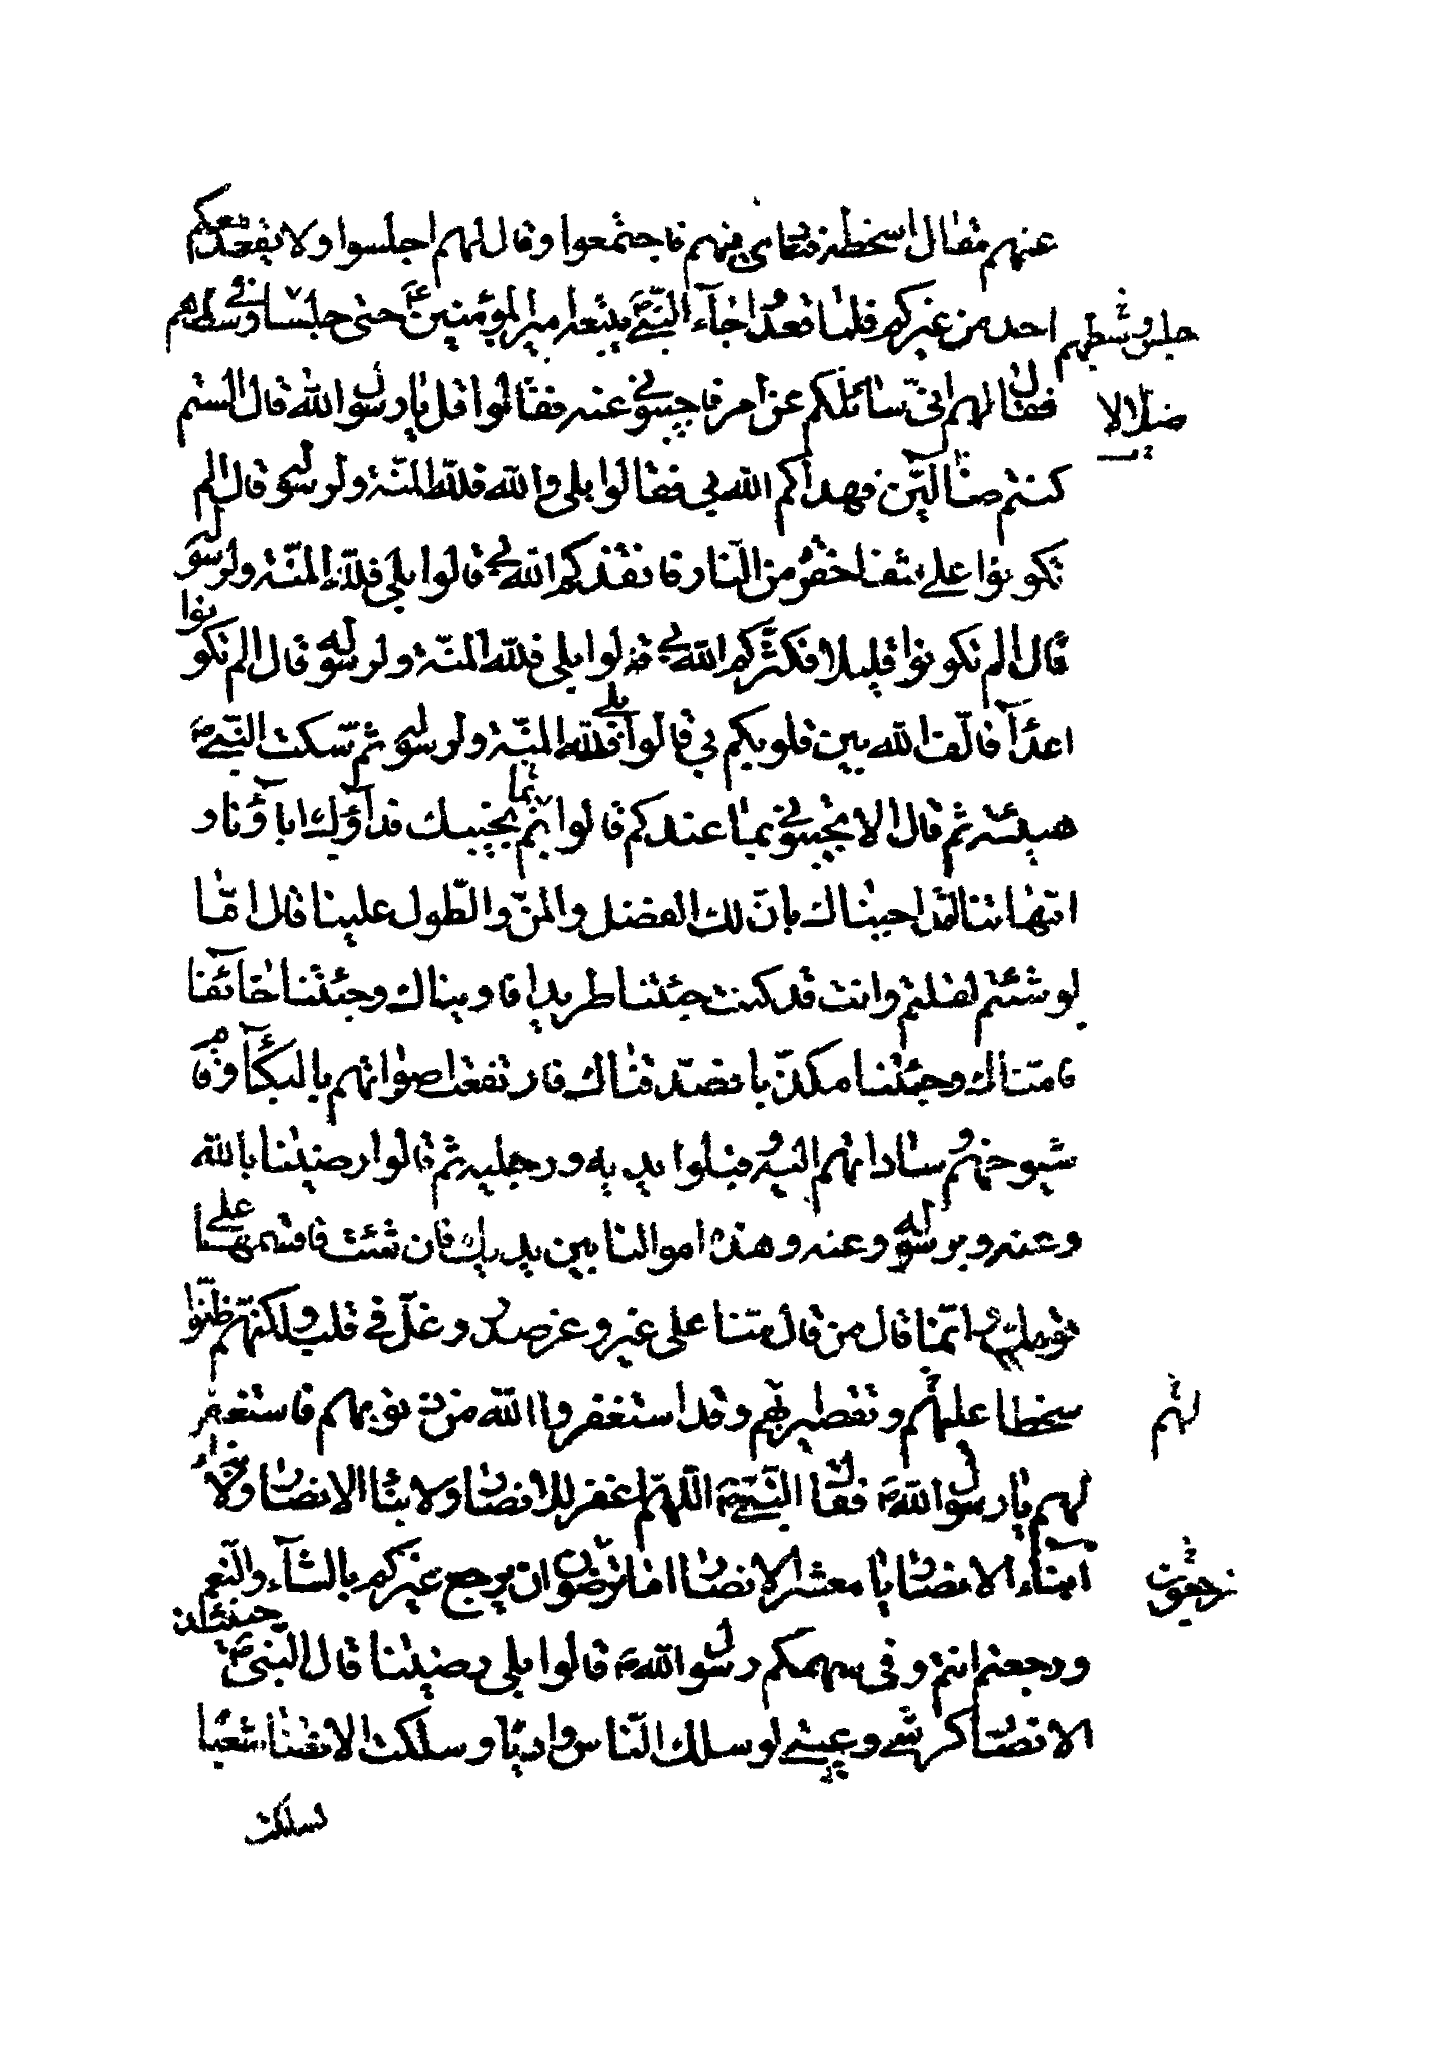 عنهم مقال اسخطه فنادى فيهم فاجتمعوا وقال لهم اجلسوا ولا يقعد معكم
احد من غيركم فلما قعدوا جآء النّبىّ يتبعه امير المؤمنين حتى جلسا وسطهم
جلس وسطهم
فقال لهم انى سائلكم عن امر فاجيبونى عنه فقالوا قل يا رسول الله قال الستم
ضلالا
كنتم ضآلّين فهداكم الله بى فقالوا بلى والله فللّه المنّة ولرسوله قال الم
تكونوا على شفا حفرة من النار فانقذكم الله بى قالوا بلى فللّه المنّة ولرسوله
قال الم تكونوا قليلا فكثّركم الله بى قالوا بلى فللّه المنّة ولرسوله قال الم تكونوا
اعدآء فالّف الله بين قلوبكم بى قالوا بلى فللّه المنّة ولرسوله ثم سكت النّبىّ
هنيئة ثم قال الا تجيبونى بما عندكم قالوا بم نجيبك فداؤك ابآؤنا و
امّهاتنا لقد اجبناك بانّ لك الفضل والمنّ والطّول علينا قال امّا
لو شئتم لقلتم وانت قد كنت جئتنا طريدا فاويناك وجئتنا خائفا
فامنّاك وجئتنا مكذّبا فصدّقناك فارتفعت اصواتهم بالبكآء وقام
شيوخهم وساداتهم اليه وقبلوا يديه ورجليه ثم قالوا رضينا بالله
وعنه وبرسوله وعنه وهذه اموالنا بين يديك فان شئت فاقسمها على
قومك وانّما قال من قال منّا على غير وغر صدر وغلّ فى قلب ولكنّهم ظنّوا
سخطا عليهم وتقصيرا بهم وقد استغفروا الله من ذنوبهم فاستغفر
لهم
لهم يا رسول الله فقال النّبىّ اللّهمّ اغفر للانصار ولابنآء الانصار ولابنآء
ابنآء الانصار يا معشر الانصار اما ترضون ان يرجع غيركم بالشآء والنّعم
ترجعون
ورجعتم انتم وفى سهمكم رسول الله قالوا بلى رضينا قال النّبىّ حينئذ
الانصار كرشى وعيبتى لو سلك النّاس واديا وسلكت الانصار شعبا
لسلكت